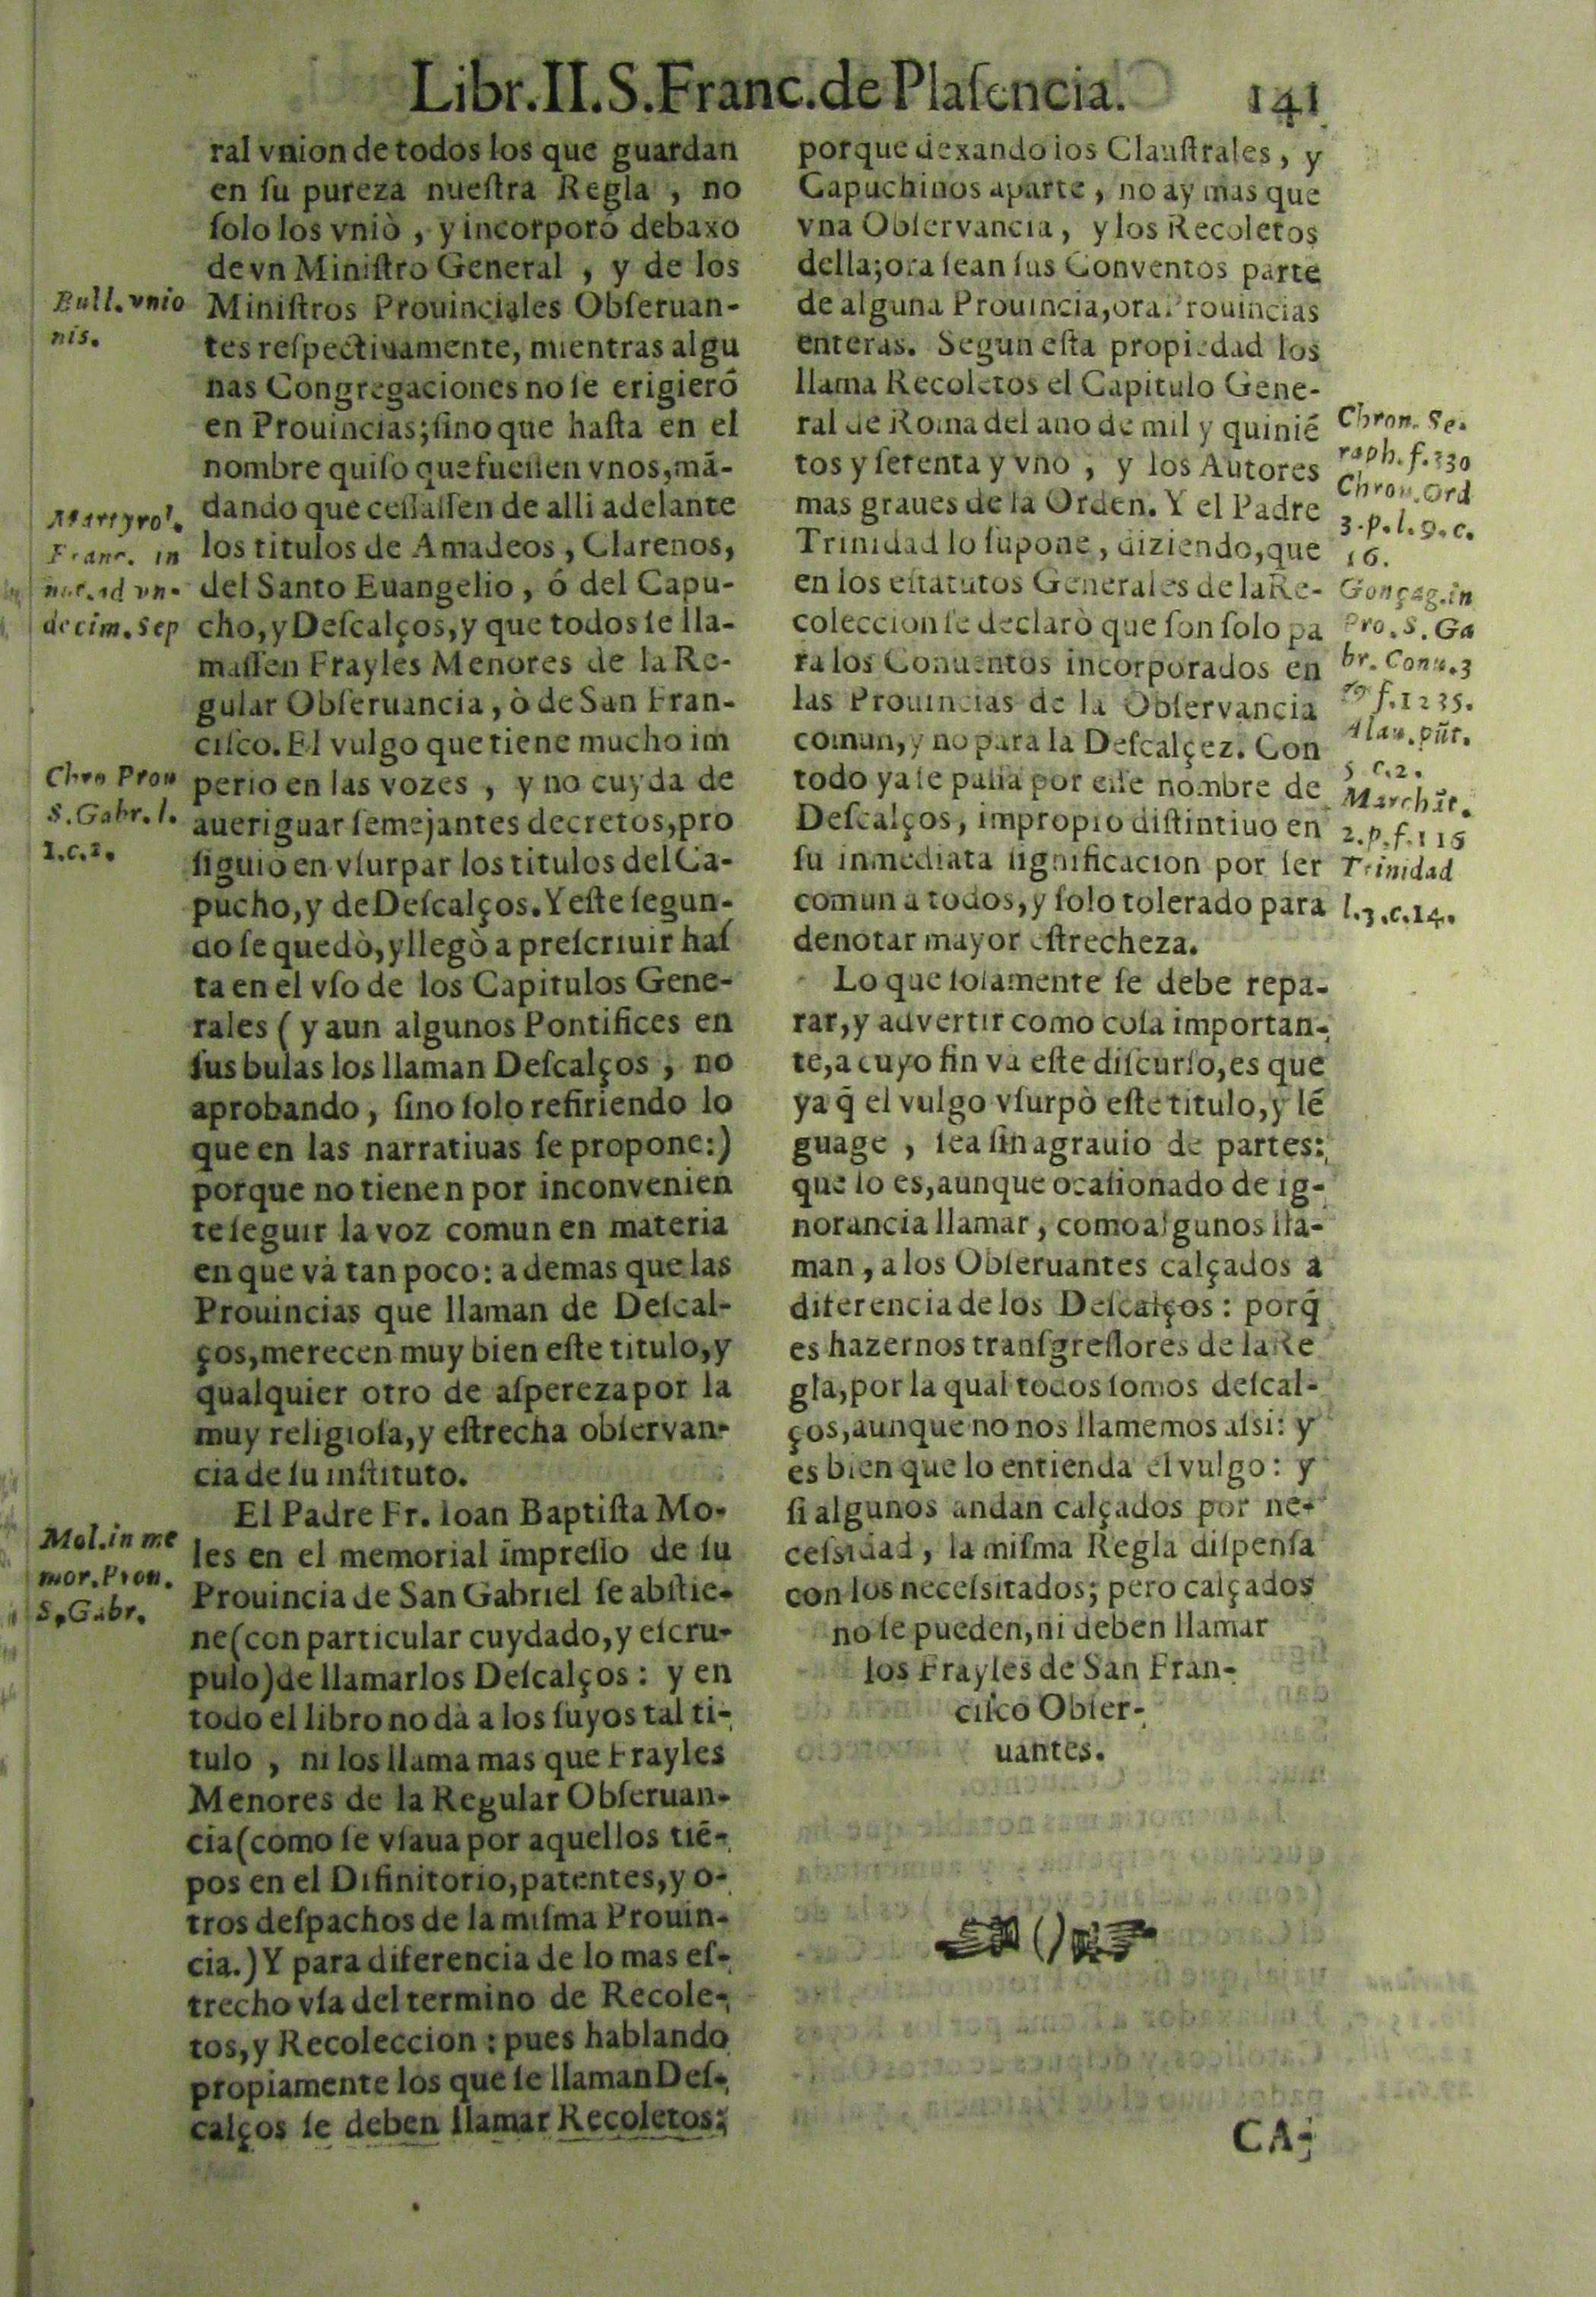 Libr.II.S.Franc.de Plaſencia. 141
ral vnion de todos los que guardan
en ſu pureza nueſtra Regla , no
ſolo los vniò , y incorporó debaxo
de vn Miniſtro General , y de los
Miniſtros Prouinciales Obſeruan-
tes reſpectiuamente, mientras algu
nas Congregaciones no ſe erigieró
en Prouincias; ſino que haſta en el
nombre quiſo que fueſſen vnos, mã-
dando que ceſſaſſen de alli adelante
los titulos de Amadeos , Clarenos,
del Santo Euangelio , ó del Capu-
cho, y Deſcalços, y que todos ſe lla-
maſſen Frayles Menores de la Re-
gular Obſeruancia , ò de San Fran-
ciſco. El vulgo que tiene mucho im
perio en las vozes , y no cuyda de
aueriguar ſemejantes decretos, pro
ſiguio en vſurpar los titulos del Ca-
pucho, y de Deſcalços. Y eſte ſegun-
do ſe quedò, y llegò a preſcriuir haſ
ta en el vſo de los Capitulos Gene-
rales ( y aun algunos Pontifices en
ſus bulas los llaman Deſcalços , no
aprobando , ſino ſolo refiriendo lo
que en las narratiuas ſe propone:)
porque no tienen por inconvenien
te ſeguir la voz comun en materia
en que và tan poco: a demas que las
Prouincias que llaman de Deſcal-
ços, merecen muy bien eſte titulo, y
qualquier otro de aſpereza por la
muy religioſa, y eſtrecha obſervan-
cia de ſu inſtituto.
El Padre Fr. Ioan Baptiſta Mo-
les en el memorial impreſſo de ſu
Prouincia de San Gabriel ſe abſtie-
ne (con particular cuydado, y eſcru-
pulo) de llamarlos Deſcalços : y en
todo el libro no dà a los ſuyos tal ti-
tulo , ni los llama mas que Frayles
Menores de la Regular Obſeruan-
cia (como ſe vſaua por aquellos tiẽ-
pos en el Difinitorio, patentes, y o-
tros deſpachos de la miſma Prouin-
cia.) Y para diferencia de lo mas eſ-
trecho vſa del termino de Recole-
tos, y Recoleccion : pues hablando
propiamente los que ſe llaman Deſ-
calços ſe deben llamar Recoletos;
Bull. vnio
nis.
Martyrol.
Franc. in
not. ad vn-
decim. Sep
Chro Prou
S. Gabr. l.
1.c.2.
Mol. in me
mor. Prou.
S. Gabr.
porque dexando los Clauſtrales , y
Capuchinos aparte , no ay mas que
vna Obſervancia , y los Recoletos
della; ora ſean ſus Conventos parte
de alguna Prouincia, ora Prouincias
enteras. Segun eſta propiedad los
llama Recoletos el Capitulo Gene-
ral de Roma del año de mil y quiniẽ
tos y ſetenta y vno , y los Autores
mas graues de la Orden. Y el Padre
Trinidad lo ſupone , diziendo, que
en los eſtatutos Generales de la Re-
coleccion ſe declarò que ſon ſolo pa
ra los Conuentos incorporados en
las Prouincias de la Obſervancia
comun, y no para la Deſcalçez. Con
todo ya ſe paſſa por eſſe nombre de
Deſcalços , impropio diſtintiuo en
ſu inmediata ſignificacion por ſer
comun a todos, y ſolo tolerado para
denotar mayor eſtrecheza.
Lo que ſolamente ſe debe repa-
rar, y advertir como coſa importan-
te, a cuyo fin va eſte diſcurſo, es que
ya q̃ el vulgo vſurpò eſte titulo, y lẽ
guage , ſea ſin agrauio de partes:
que lo es, aunque ocaſionado de ig-
norancia llamar , como algunos lla-
man , a los Obſeruantes calçados a
diferencia de los Deſcalços : porq̃
es hazernos tranſgreſſores de la Re
gla, por la qual todos ſomos deſcal-
ços, aunque no nos llamemos aſsi: y
es bien que lo entienda el vulgo : y
ſi algunos andan calçados por ne-
ceſsidad , la miſma Regla diſpenſa
con los neceſsitados; pero calçados
no ſe pueden, ni deben llamar
los Frayles de San Fran-
ciſco Obſer-
uantes.
Chron. Se.
raph. f.330
Chron. Ord
3.p.l.9.c.
16.
Gonçag. in
Pro. S. Ga
br. Conu.3
f.1235.
5 c.2.
Marchãt.
2.p.f.116
Trinidad
l.3.c.14.
()
CA-